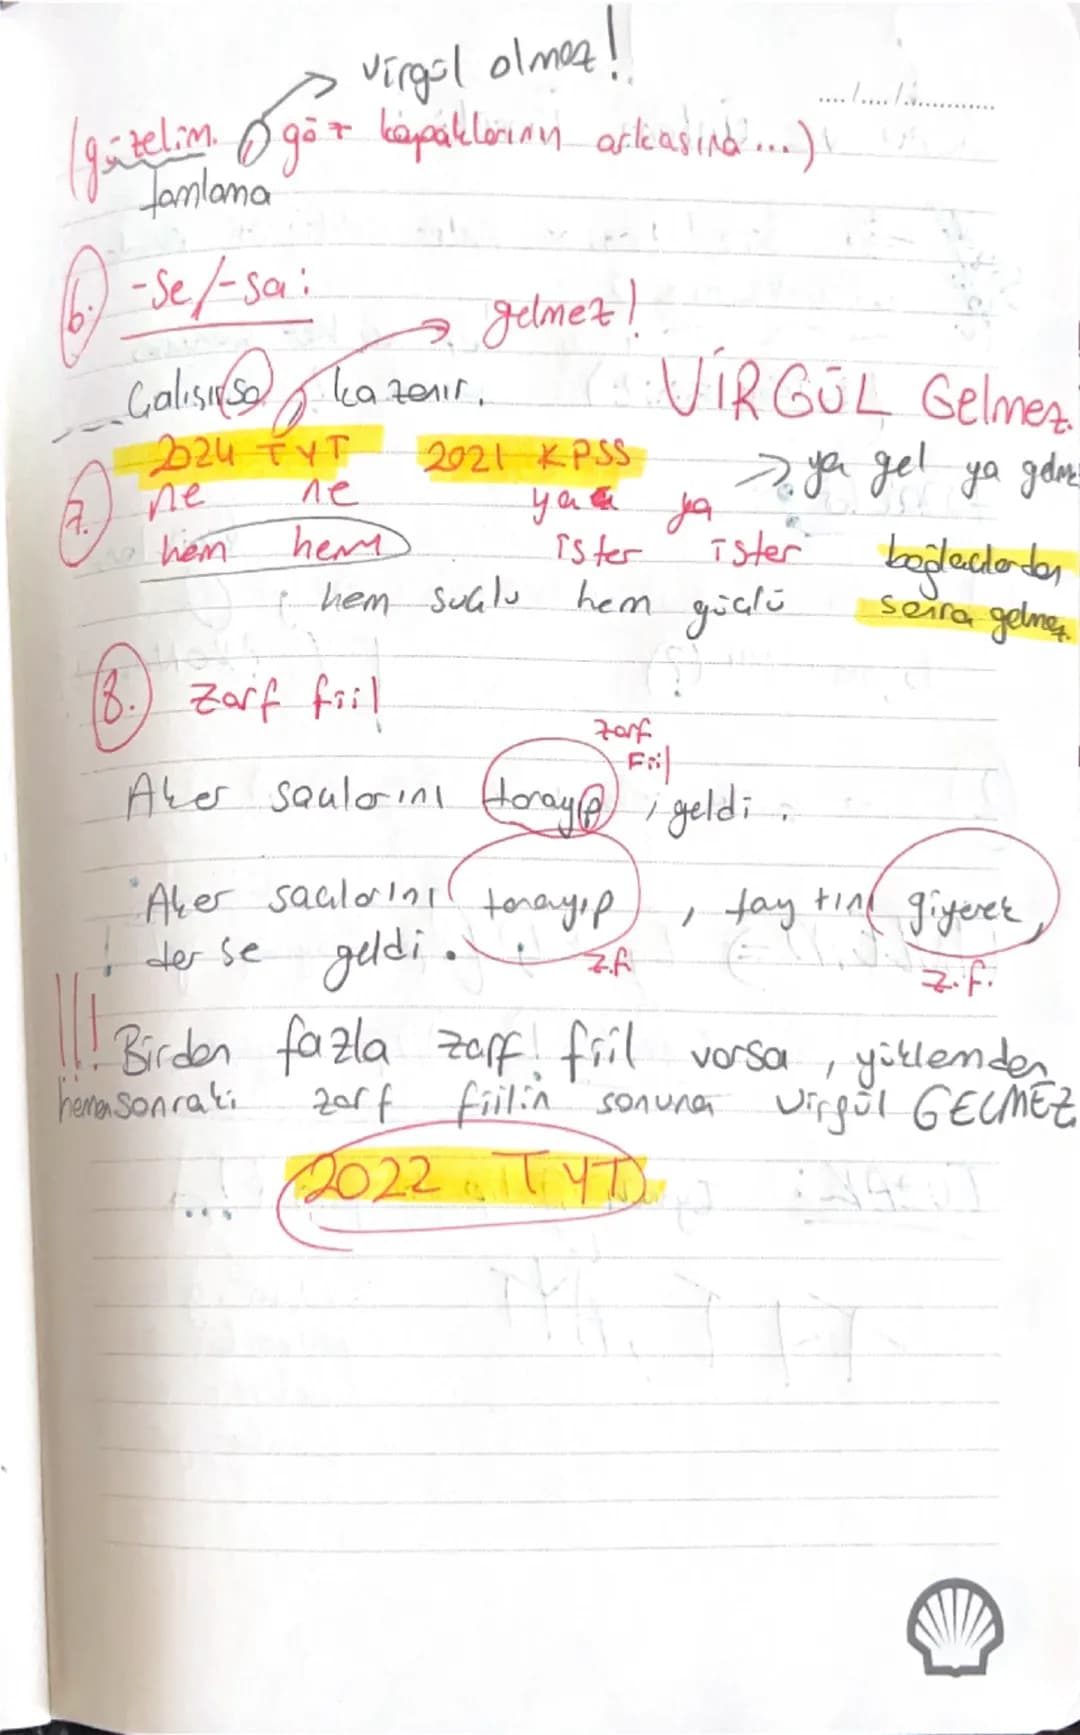 virgül olmaz!
..../..../.............
(güzelim. , göz kapaklarının arkasında...)
tamlama
6. -se/-sa:
gelmez!
Çalışırsa , kazanır.
VİRGÜL Gelmez.
2024 TYT 2021 KPSS
-> ya gel ya gelme
7. ne ne ya ya
hem hem ister ister bağlaçlardan
hem suçlu hem güçlü sonra gelmez.
8. Zarf fiil
zarf
Fiil
Aker saçlarını tarayıp , geldi.
Aker saçlarını tarayıp , taytını giyerek,
derse geldi.
z.f.
z.f.
!!! Birden fazla zarf fiil varsa , yüklemden
hemen sonraki zarf fiilin sonuna virgül GELMEZ
2022 TYT
...